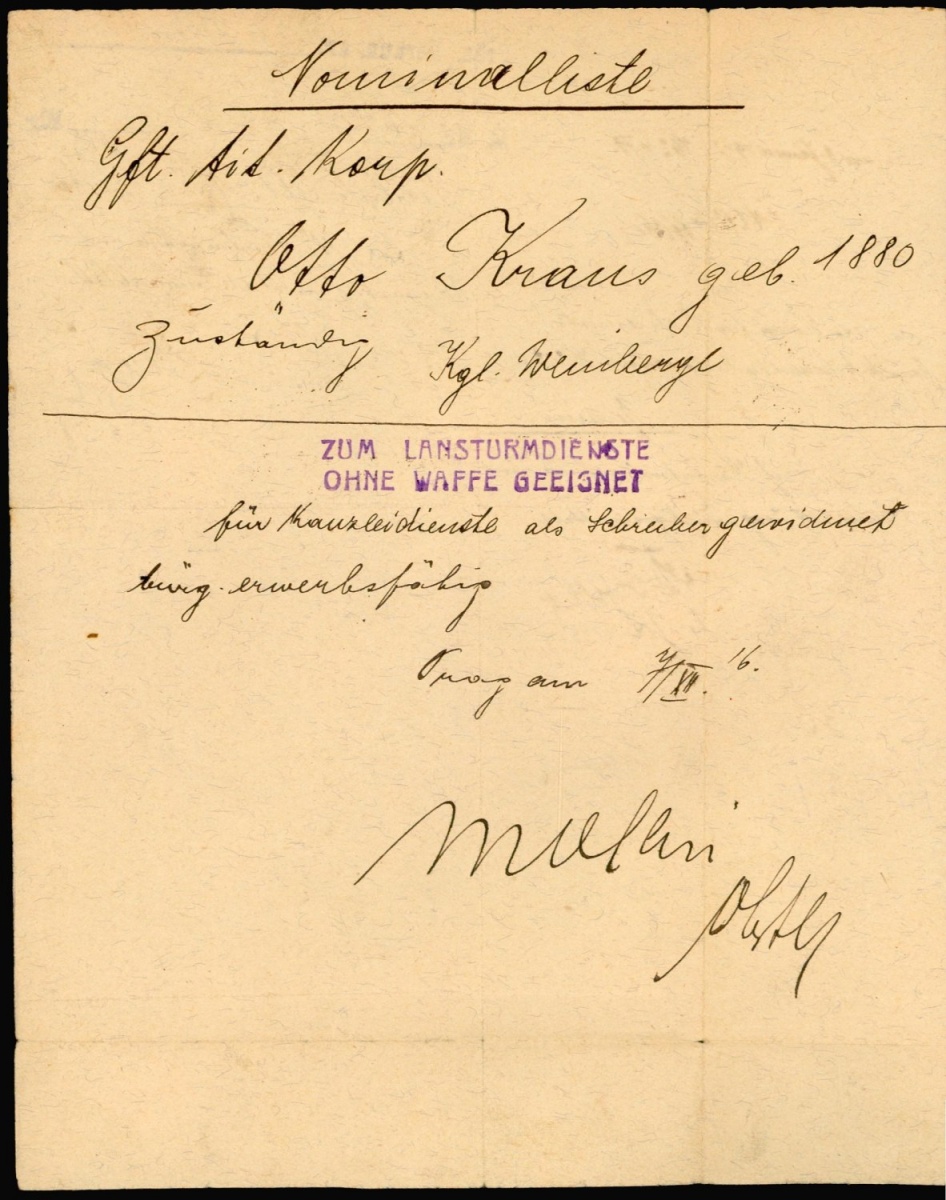 Nominalliste
Gft. tit. Korp.
Otto Kraus geb. 1880
Zuständig Kgl. Weinberge
ZUM LANSTURMDIENSTE
OHNE WAFFE GEEIGNET
für Kanzleidienste als Schreiber gewidmet
bürg. erwerbsfähig
Prag am 7/XII. 16.
Obstl